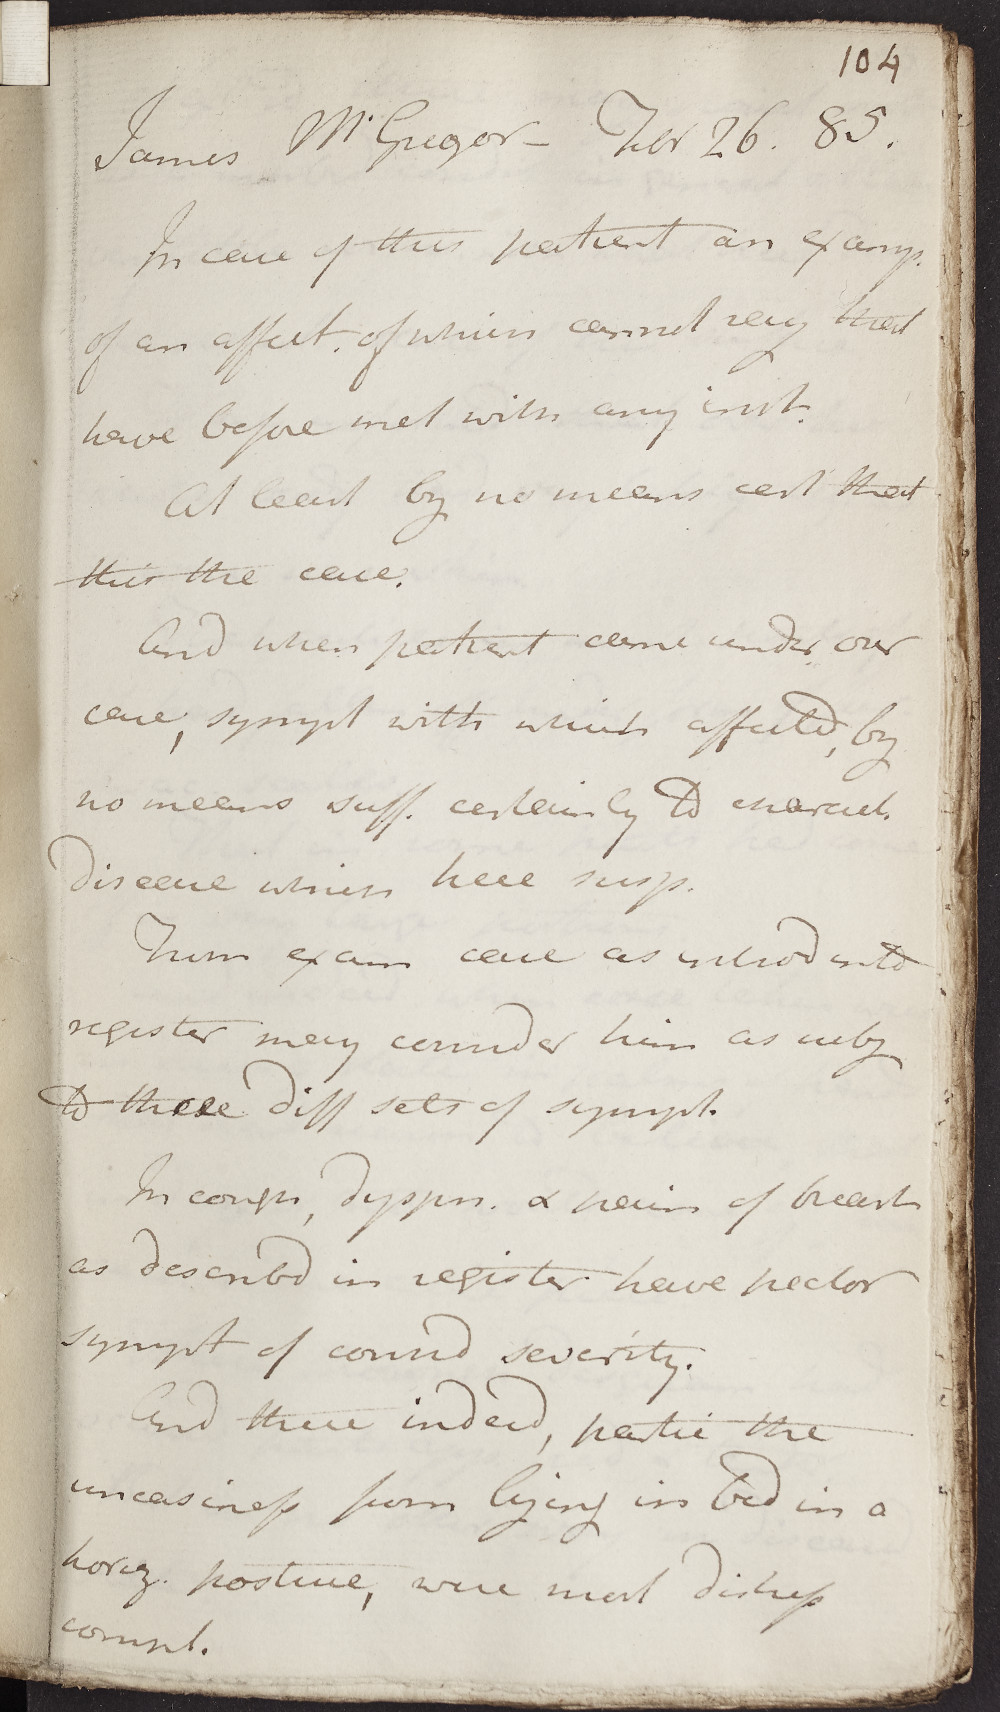 104
James McGregor - Febr 26. 85.
In case of this patient an examp.
of an affect. of which cannot say that
have before met with any inst.
At least by no means cert that
this the case.
And when patient came under our
care, sympt with which affected, by
no means suff. certainly to charact.
disease which here susp.
From exam case as introd into
register may consider him as subj
to three diff sets of sympt.
In cough, dyspn. & pain of breast
as described in register have pector
sympt of consid severity.
And these indeed, partic the
uneasiness from lying in bed in a
horiz. posture, were most distress
complt.